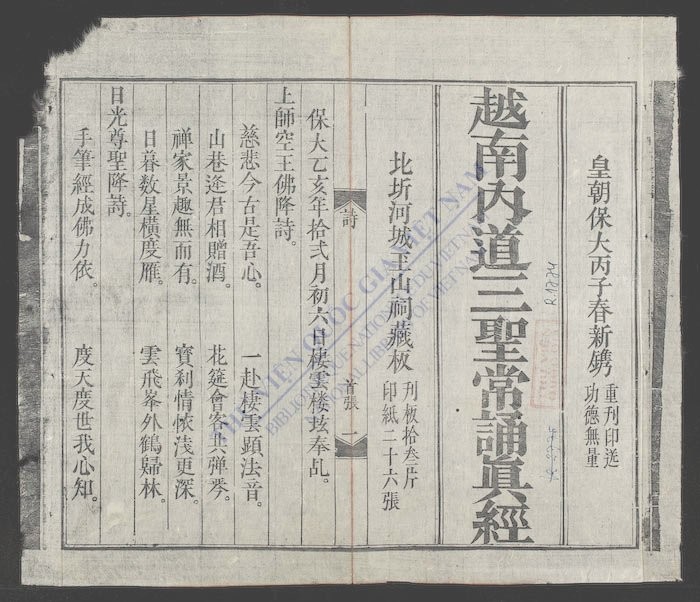 皇朝保大丙子春新鐫
重刊印送
功德無量
越南内道三聖常誦真經
北圻河城玉山祠藏板
刊板拾叁片
印紙二十六張
詩
首張 一
保大乙亥年拾弍月初六日棲雲楼玹奉乩。
上師空王佛降詩。
慈悲今古是吾心。 一赴棲雲顕法音。
山巷逢君相贈酒。 花筵會客共弹琴。
禅家景趣無而有。 寳刹情懷浅更深。
日暮数星橫度雁。 雲飛峯外鶴歸林。
日光尊聖降詩。
手筆經成佛力依。 度天度世我心知。
THƯ VIỆN QUỐC GIA VIỆT NAM
BIBLIOTHÈQUE NATIONALE DU VIETNAM
NATIONAL LIBRARY OF VIETNAM
R.1274